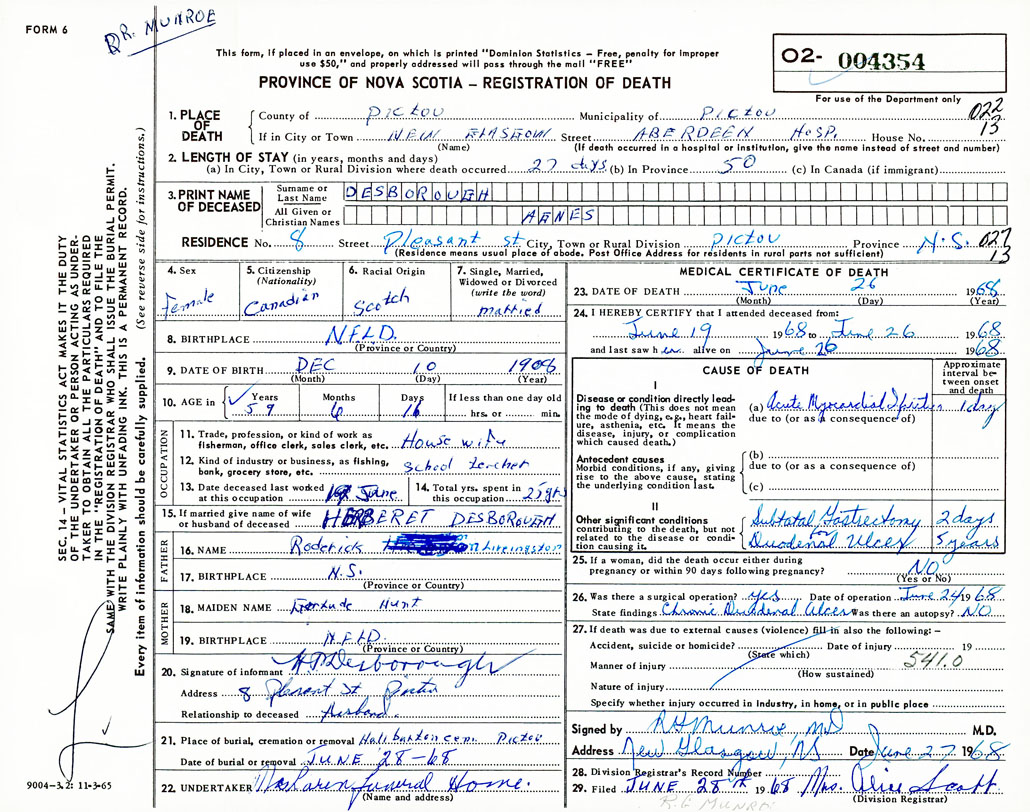 FORM 6
DR. MUNROE
This form, if placed in an envelope, on which is printed "Dominion Statistics – Free, penalty for improper
use $50," and properly addressed will pass through the mail "FREE"
PROVINCE OF NOVA SCOTIA – REGISTRATION OF DEATH
02- 004354
For use of the Department only
022
13
1. PLACE OF DEATH
County of PICTOU Municipality of PICTOU
If in City or Town NEW GLASGOW Street ABERDEEN HOSP. House No.
(Name) (If death occurred in a hospital or institution, give the name instead of street and number)
2. LENGTH OF STAY (in years, months and days)
(a) In City, Town or Rural Division where death occurred 27 days (b) In Province 50 (c) In Canada (if immigrant)
3. PRINT NAME OF DECEASED
Surname or Last Name DESBOROUGH
All Given or Christian Names AGNES
RESIDENCE No. 8 Street Pleasant St City, Town or Rural Division PICTOU Province N.S. 027
(Residence means usual place of abode. Post Office Address for residents in rural parts not sufficient) 13
SEC. 14 – VITAL STATISTICS ACT MAKES IT THE DUTY
OF THE UNDERTAKER OR PERSON ACTING AS UNDER-
TAKER "TO OBTAIN ALL THE PARTICULARS REQUIRED
IN THE "REGISTRATION OF DEATH" AND TO FILE THE
SAME WITH THE DIVISION REGISTRAR WHO SHALL ISSUE THE BURIAL PERMIT.
WRITE PLAINLY WITH UNFADING INK. THIS IS A PERMANENT RECORD.
Every item of information should be carefully supplied. (See reverse side for instructions.)
4. Sex
Female
5. Citizenship
(Nationality)
Canadian
6. Racial Origin
Scotch
7. Single, Married,
Widowed or Divorced
(write the word)
married
8. BIRTHPLACE NFLD.
(Province or Country)
9. DATE OF BIRTH DEC 10 1908
(Month) (Day) (Year)
10. AGE in Years Months Days If less than one day old
59 6 16 hrs. or min.
OCCUPATION
11. Trade, profession, or kind of work as
fisherman, office clerk, sales clerk, etc. House wife
12. Kind of industry or business, as fishing,
bank, grocery store, etc. School teacher
13. Date deceased last worked
at this occupation June
14. Total yrs. spent in
this occupation
15. If married give name of wife
or husband of deceased HERBERET DESBOROUGH
FATHER
16. NAME Roderick Livingston
17. BIRTHPLACE N.S.
(Province or Country)
MOTHER
18. MAIDEN NAME Gertrude Hunt
19. BIRTHPLACE NFLD
(Province or Country)
20. Signature of informant H P Desborough
Address 8 Pleasant St. Pictou
Relationship to deceased Husband.
21. Place of burial, cremation or removal Haliburton Cem. Pictou
Date of burial or removal JUNE 28-68
22. UNDERTAKER MacLaren Funeral Home.
(Name and address)
9004-3.2: 11-3-65
MEDICAL CERTIFICATE OF DEATH
23. DATE OF DEATH June 26 1968
(Month) (Day) (Year)
24. I HEREBY CERTIFY that I attended deceased from:
June 19 1968 to June 26 1968
and last saw h er alive on June 26 1968
CAUSE OF DEATH
Approximate interval be-tween onset and death
I
Disease or condition directly lead-
ing to death (This does not mean
the mode of dying, e.g., heart fail-
ure, asthenia, etc. It means the
disease, injury, or complication
which caused death.)
(a) Acute Myocardial 1 day
due to (or as a consequence of)
Antecedent causes
Morbid conditions, if any, giving
rise to the above cause, stating
the underlying condition last.
(b)
due to (or as a consequence of)
(c)
II
Other significant conditions
contributing to the death, but not
related to the disease or condi-
tion causing it.
Subtotal Gastrectomy 2 days
for
Duodenal Ulcer 5 years
25. If a woman, did the death occur either during
pregnancy or within 90 days following pregnancy? NO
(Yes or No)
26. Was there a surgical operation? yes Date of operation June 24 1968
State findings Chronic Duodenal Ulcer Was there an autopsy? NO
27. If death was due to external causes (violence) fill in also the following: –
Accident, suicide or homicide? Date of injury 19
(State which)
Manner of injury 541.0
(How sustained)
Nature of injury
Specify whether injury occurred in Industry, in home, or in public place
Signed by RG Munroe, MD M.D.
Address New Glasgow, NS Date June 27 1968
28. Division Registrar's Record Number
29. Filed JUNE 28th 1968 Mrs. Alice Scott
(Division Registrar)
R G MUNRO